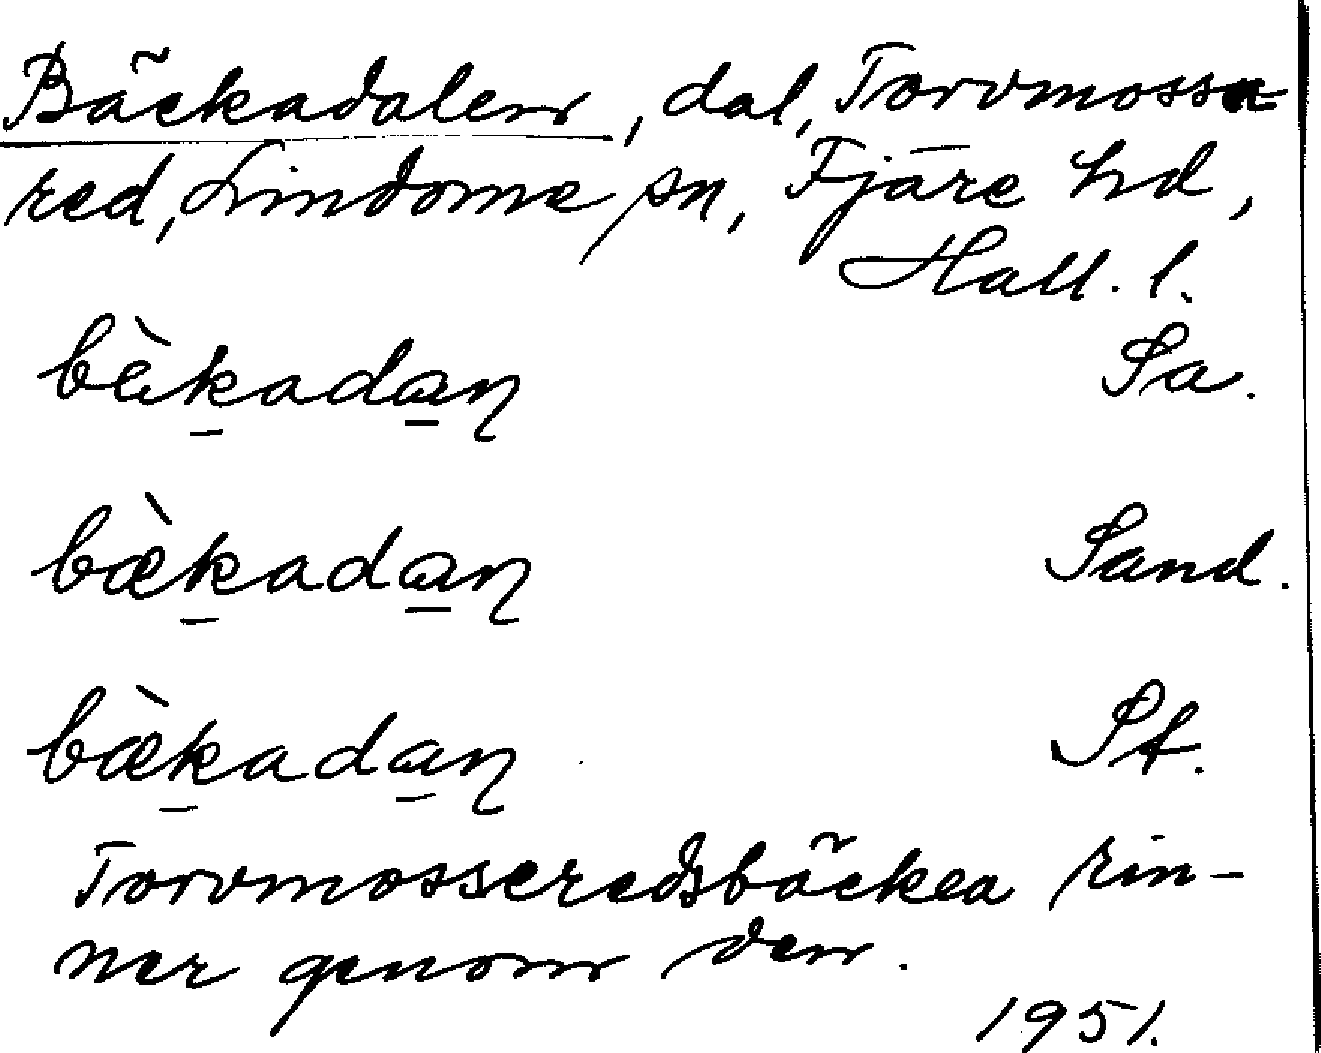 Bäckadalen, dal, Torvmosse-
red, Lindome sn, Fjäre hd,
Hall. l.
bæ̀k̠ada̠ɳ Sa.
bæ̀k̠ada̠ɳ Sand.
bæ̀k̠ada̠ɳ St.
Torvmosseredsbäcken rin-
ner genom den.
1951.